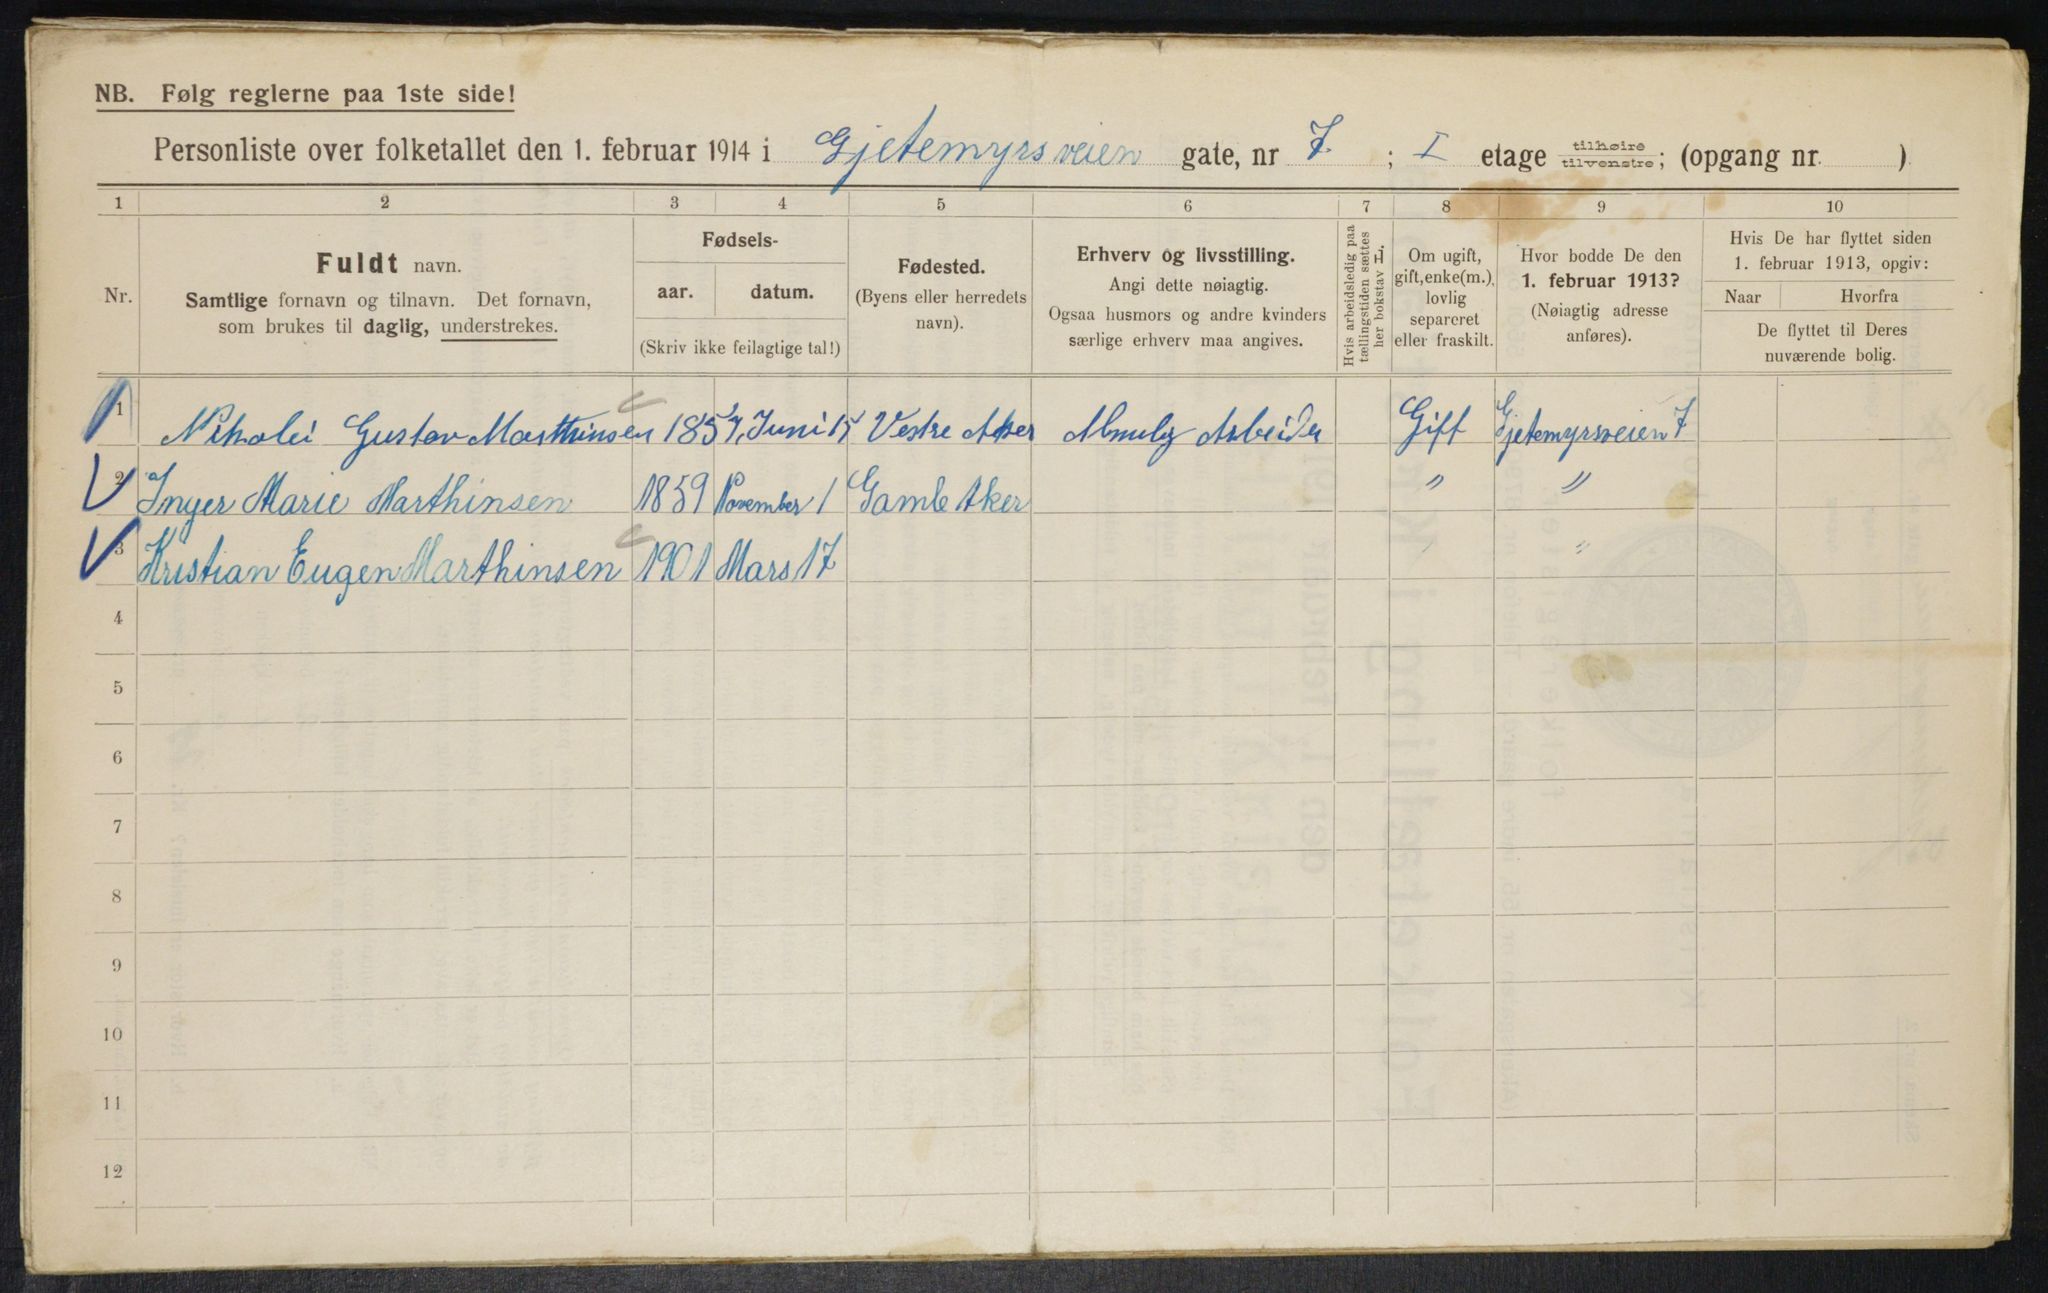 NB. Følg reglerne paa 1ste side!
Personliste over folketallet den 1. februar 1914 i Gjetemyrsveien gate, nr 7 ; I etage tilhøire tilvenstre; (opgang nr. )
1 2 3 4 5 6 7 8 9 10
Nr.
Fuldt navn.
Samtlige fornavn og tilnavn. Det fornavn,
som brukes til daglig, understrekes.
Fødsels-
aar. datum.
(Skriv ikke feilagtige tal!)
Fødested.
(Byens eller herredets
navn).
Erhverv og livsstilling.
Angi dette nøiagtig.
Ogsaa husmors og andre kvinders
særlige erhverv maa angives.
Hvis arbeidsledig paa
tællingstiden sættes
her bokstav L.
Om ugift,
gift, enke(m.),
lovlig
separeret
eller fraskilt.
Hvor bodde De den
1. februar 1913?
(Nøiagtig adresse
anføres).
Hvis De har flyttet siden
1. februar 1913, opgiv:
Naar Hvorfra
De flyttet til Deres
nuværende bolig.
1 Nikolei Gustav Marthinsen 1857, Juni 15 Vestre Aker Arbeider Gift Gjetemyrsveien 7
2 Inger Marie Marthinsen 1859 November 1 Gamle Aker " "
3 Kristian Eugen Marthinsen 1901 Mars 17 "
4
5
6
7
8
9
10
11
12